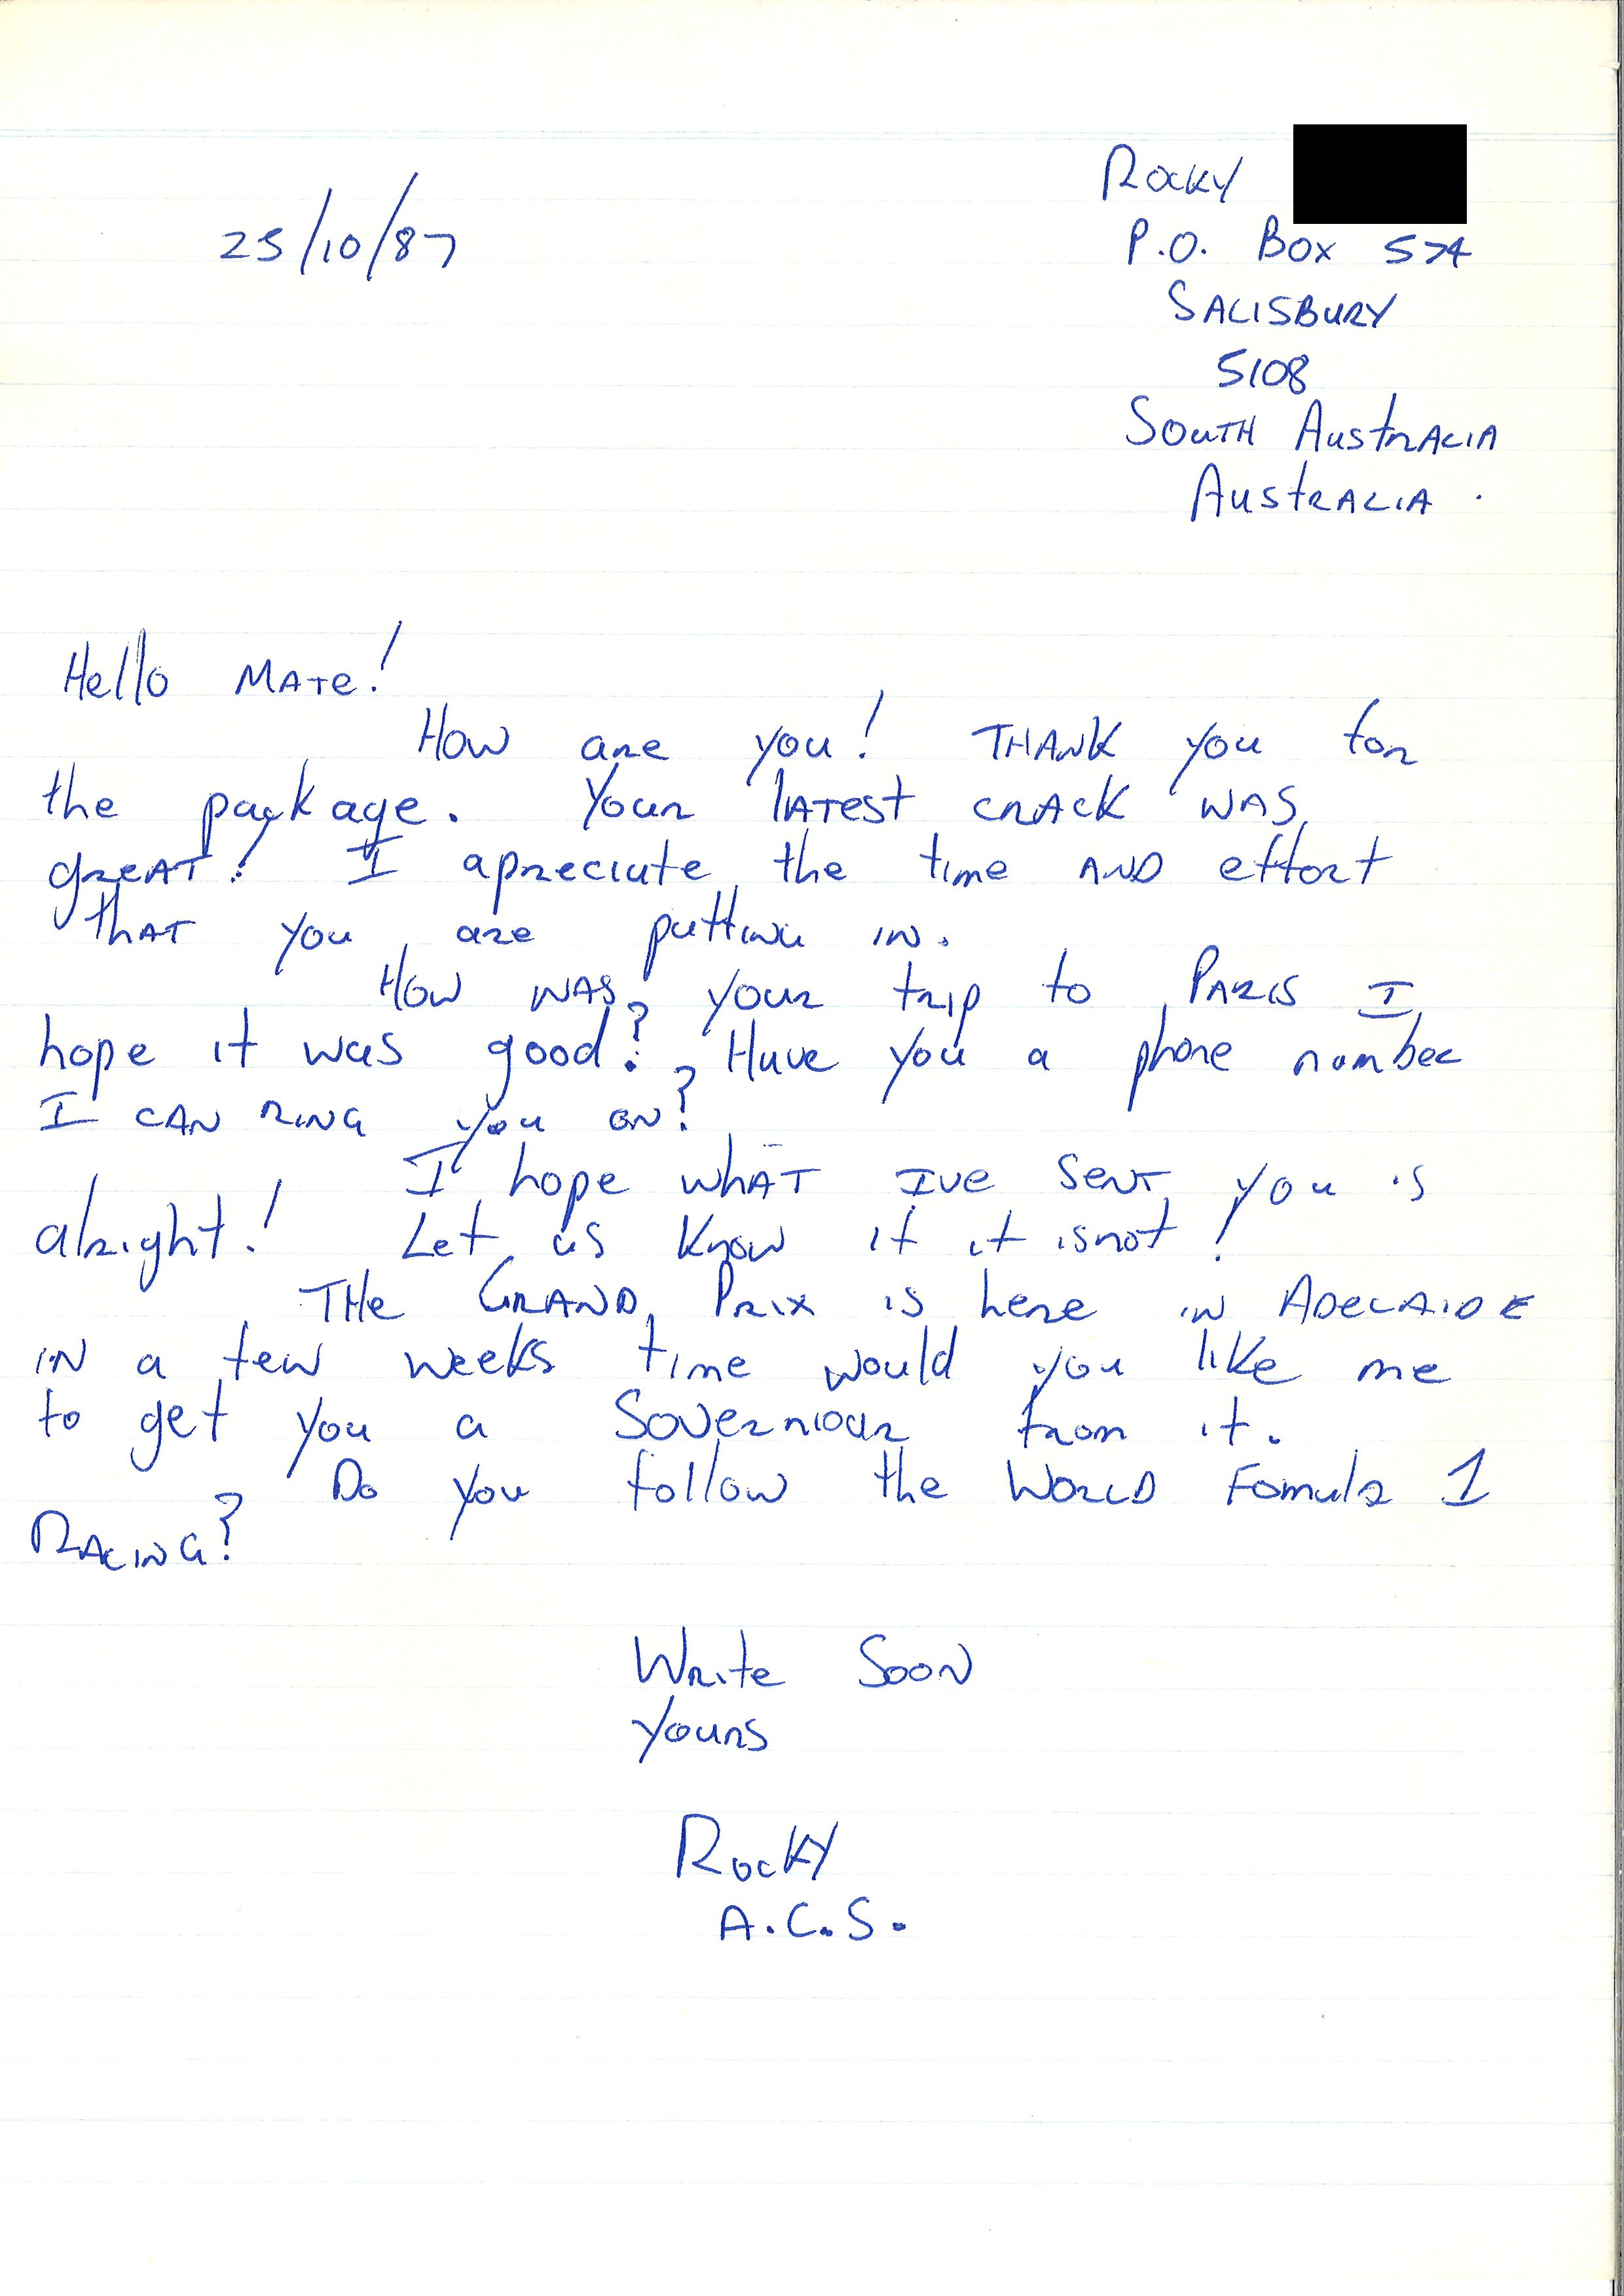 Rocky
25/10/87
P.O. Box 574
SALISBURY
5108
South Australia
Australia.
Hello Mate!
How are you! THANK you for
the package. Your latest crack was
great! I apreciate the time AND effort
that you are putting in.
How was your trip to Paris I
hope it was good? Have you a phone number
I can ring you on?
I hope what Ive sent you is
alright! Let us know if it isnot!
The Grand Prix is here in Adelaide
in a few weeks time would you like me
to get you a Soverniour from it.
Do you follow the World Fomula 1
Racing?
Write Soon
Yours
Rocky
A.C.S.